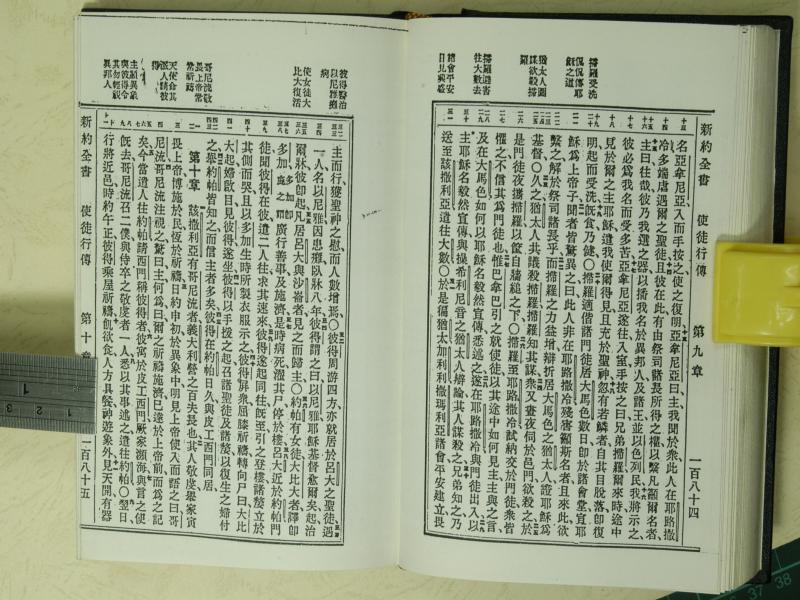 掃羅受洗
侃侃傳耶
穌之道
猶太人圖
謀欲殺掃
羅
掃羅避害
往大數去
諸會平安
日見興盛
新約全書 使徒行傳 第九章 一百八十四
名亞拿尼亞入而手按之使之復明亞拿尼亞曰主我聞於衆此人在耶路撒
冷多端虐遇爾之聖徒彼在此有由祭司諸長所得之權以繫凡籲爾名者
主曰往哉彼乃我選之器以播我名於異邦人及諸王並以色列民我將示之
彼必爲我名而受多苦亞拿尼亞遂往入室手按之曰兄弟掃羅爾來時途中
見於爾之主耶穌遣我使爾得見且充於聖神忽有若鱗者自其目脫落卽復
明起而受洗旣食乃健〇掃羅適偕諸門徒居大馬色數日卽於諸會堂宣耶
穌爲上帝子聞者皆驚異之曰此人非在耶路撒冷殘害籲斯名者且來此欲
繫之解於祭司諸長乎而掃羅之力益增辯折居大馬色之猶太人證耶穌爲
基督〇久之猶太人共議殺掃羅掃羅知其謀衆又晝夜伺於邑門欲殺之於
是門徒夜携掃羅以筐自牆縋之下〇掃羅至耶路撒冷試納交於門徒衆皆
懼之不信其爲門徒也惟巴拿巴引之就使徒以其途中如何見主主與之言
及在大馬色如何以耶穌名毅然宣傳悉述之遂在耶路撒冷與門徒出入以
主耶穌名毅然宣傳與操希利尼音之猶太人辯論其人謀殺之兄弟知之乃
送至該撒利亞遣往大數〇於是徧猶太加利利撒瑪利亞諸會平安建立畏
彼得醫治
以尼雅癱
病
使女徒大
比大復活
哥尼流敬
畏上帝常
常祈禱
天使命其
遣人請彼
得
主顯異象
與彼得令
其勿輕視
異邦人
主而行獲聖神之慰而人數增焉〇彼得周游四方亦就居於呂大之聖徒遇
一人名以尼雅因患攤臥牀八年彼得謂之曰以尼雅耶穌基督愈爾矣起治
爾牀彼卽起凡居呂大與沙崙者見之而歸主〇約帕有女徒大比大者譯卽
多加 廣行善事及施濟是時病死濯其尸停於樓呂大近於約帕門
徒聞彼得在彼遣二人往求其速來彼得遂起同往旣至引之登樓諸嫠立於
其側而哭且以多加生時所製衣服示之彼得屏衆屈膝祈禱轉向尸曰大比
大起婦啟目見彼得遂坐彼得以手援之起召諸聖徒及諸嫠以復生之婦付
之舉約帕皆知之而信主者多矣彼得在約帕日久與皮工西門同居
第十章 該撒利亞有哥尼流者義大利營之百夫長也其人敬虔舉家寅
畏上帝博施於民恆於祈禱日約申初於異象中明見上帝使入而語之曰哥
尼流哥尼流注視之驚曰主何爲曰爾之祈禱施濟已達於上帝前而爲之記
矣今當遣人往約帕請西門稱彼得者彼寓於皮工西門厥家瀕海與言之使
旣去哥尼流召二僕與侍卒之敬虔者一人悉以其事述之遣往約帕〇翌日
行將近邑時約午正彼得乘屋祈禱飢欲食人方具餐神遊象外見天開有器
新約全書 使徒行傳 第十章 一百八十五